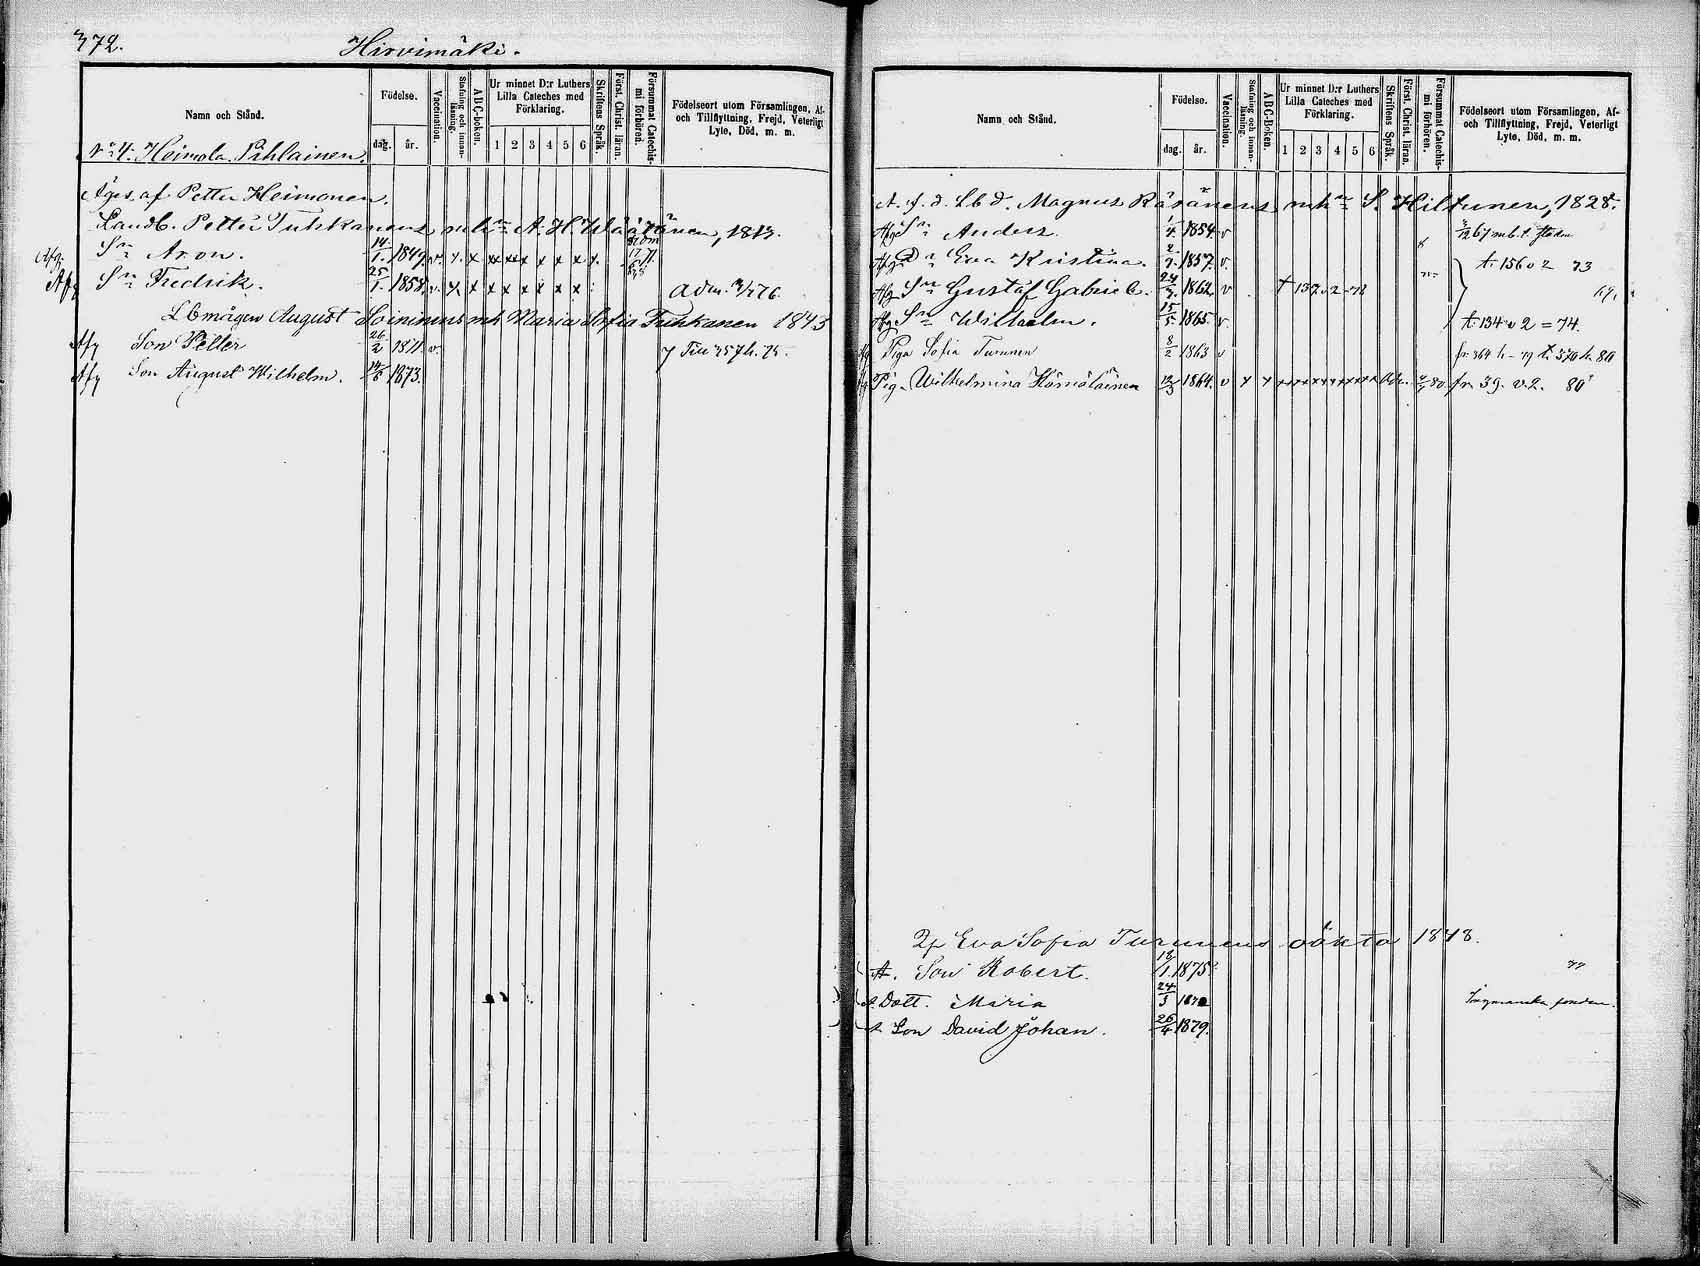 372.
Hirvimäki.
Namn och Stånd.
Födelse.
dag. år.
Vaccination.
Stafning och innanläsning.
ABC-boken.
Ur minnet D:r Luthers Lilla Cateches med Förklaring.
1 2 3 4 5 6
Skriftens Språk.
Först. Christ. läran.
Försummat Catechismi förhören.
Födelseort utom Församlingen, Af- och Tillflyttning, Frejd, Veterligt Lyte, Död, m. m.
No 4. Heimola. Pihlainen.
Äges af Petter Heimonen.
Landb. Petter Tuhkanens enk:n A. H. Väätänen, 1813.
Afg Sn Aron. 14/1. 1849. v. x x
Afg Sn Fredrik. 25/1. 1858. v. x x x x x x x x Adm. /76
Lbmågen August Soininens mh Maria Sofia Tuhkanen 1843
Afg Son Petter 26/2 1871. v. Till 357 h. 75.
Afg Son August Wilhelm. 14/6 1873.
Namn och Stånd.
Födelse.
dag. år.
Vaccination.
Stafning och innanläsning.
ABC-boken.
Ur minnet D:r Luthers Lilla Cateches med Förklaring.
1 2 3 4 5 6
Skriftens Språk.
Först. Christ. läran.
Försummat Catechismi förhören.
Födelseort utom Församlingen, Af- och Tillflyttning, Frejd, Veterligt Lyte, Död, m. m.
A. f. d. Lbd. Magnus Räsänens enk:n S. Hiltunen, 1828.
Afg Sn Anders. 1/4. 1854. v 67 m. b. t. Staden
Afg Dr Eva Kristina. 2/7. 1857. v. t. 156 v 2 73
Afg Sn Gustaf Gabriel. 24/7. 1862. v t 137 v 2 - 78
Afg Sn Wilhelm. 15/5. 1865. v. t. 134 v 2 = 74.
Afg Piga Sofia Turunen 8/2 1863 v fr. 364 h - 79 t. 370 h. 80
Pig. Wilhelmina Hämäläinen 12/3 1864. v x x fr. 39. v. 2. 80
Eva Sofia Turunens oäkta 1848.
A. Son Robert. 18/1. 1875. 77
A. Dott. Maria 24/3
A. Son David Johan. 26/4 1879.